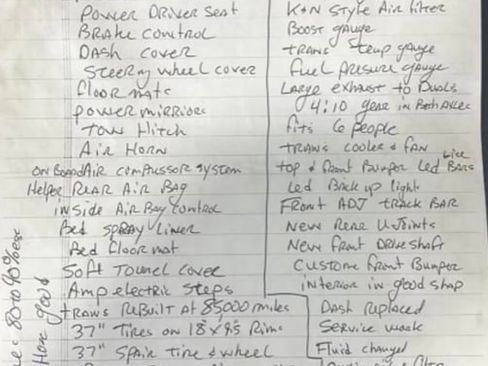 Power Driver Seat
Brake control
Dash cover
Steering wheel cover
floor mats
power mirriors
Tow Hitch
Air Horn
on Board Air compussor system
Helper Rear Air Bag
inside Air Bag control
Bed Spray Liner
Bed floor mat
Soft Tounel cover
Amp electric Steps
trans ReBuilt At 85000 miles
37" Tires on 18x9.5 Rims
37" Spair tire & wheel
K+N Style Air filter
Boost gauge
trans temp gauge
fuel presure gauge
Large exhaust to Duals
4:10 gear in Both Axles
fits 6 people
trans cooler & fan
top & front Bumper Led Bars
Led Back up light
Front ADJ track BAR
New Rear U-Joints
New front Driveshaft
Custome front Bumper
interior in good shap
Dash Replaced
Service work
Fluid changed
80 to 90% 
good